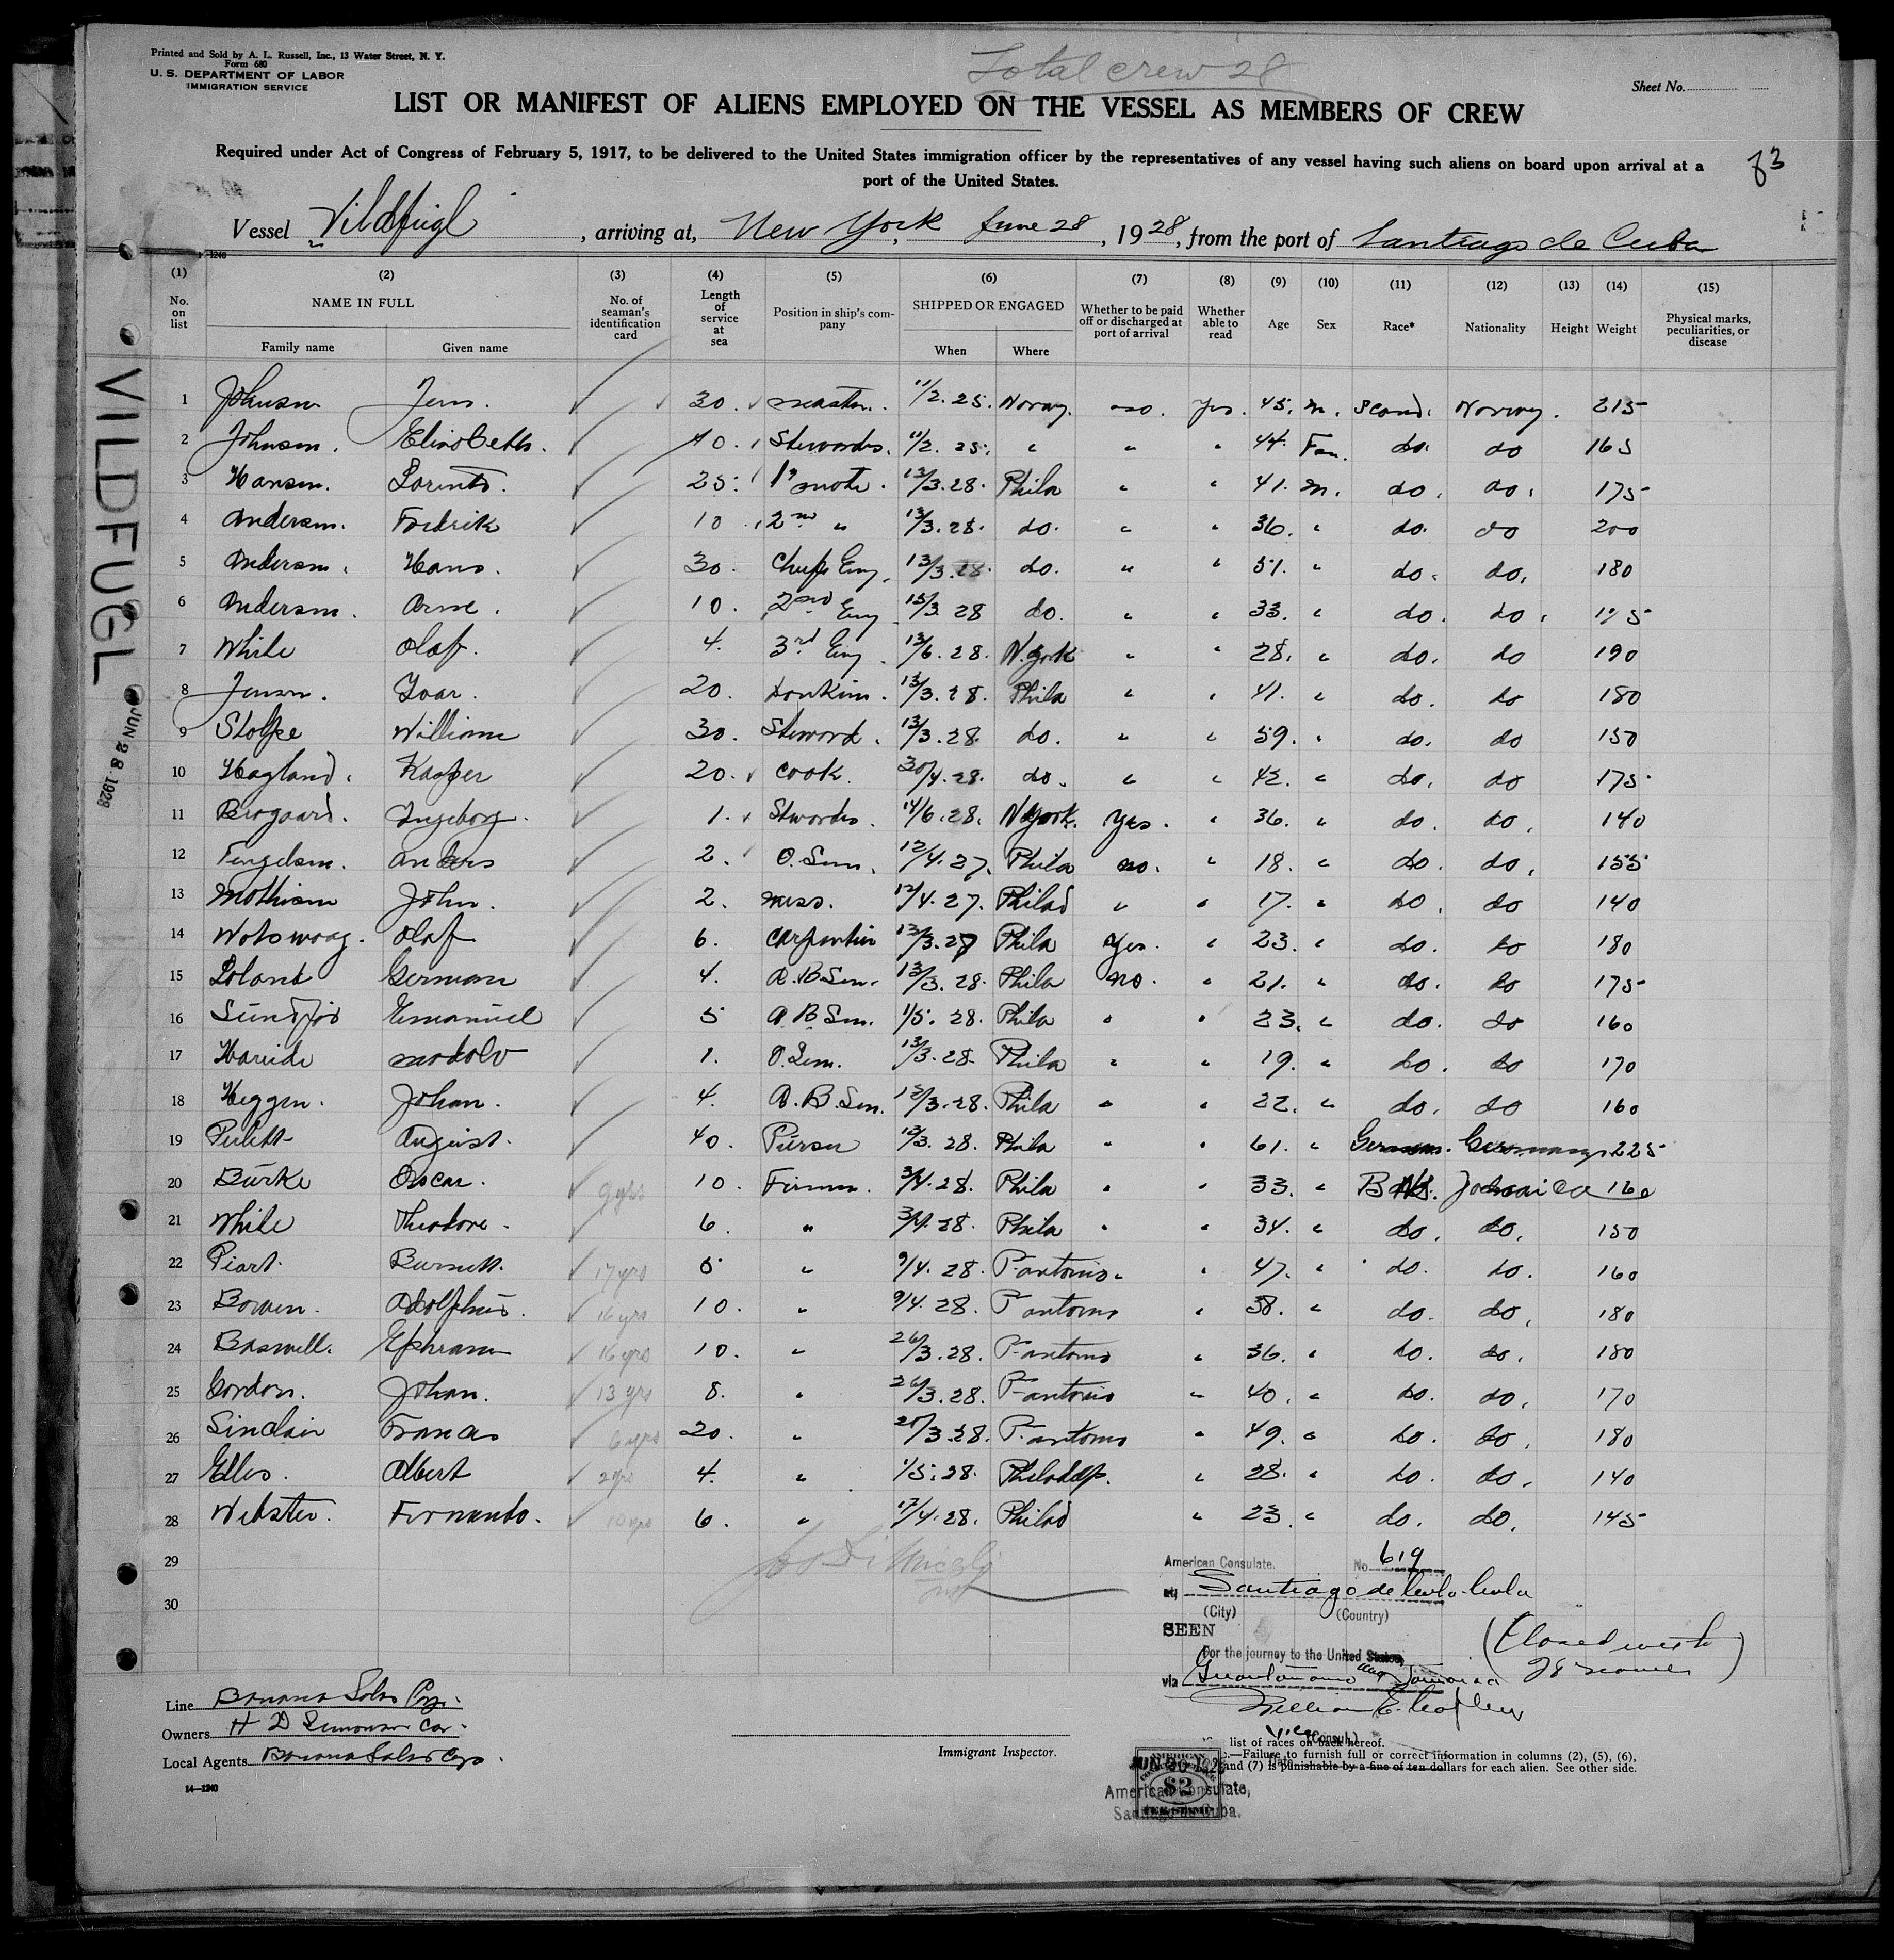 Printed and Sold by A. L. Russell, Inc., 13 Water Street, N. Y.
Form 680
U. S. DEPARTMENT OF LABOR
IMMIGRATION SERVICE
Total crew 28
Sheet No.
LIST OR MANIFEST OF ALIENS EMPLOYED ON THE VESSEL AS MEMBERS OF CREW
Required under Act of Congress of February 5, 1917, to be delivered to the United States immigration officer by the representatives of any vessel having such aliens on board upon arrival at a
port of the United States.
83
Vessel Vildfugl, arriving at, New York, June 28, 1928, from the port of Santiago de Cuba
(1) (2) (3) (4) (5) (6) (7) (8) (9) (10) (11) (12) (13) (14) (15)
No. on list NAME IN FULL Family name Given name No. of seaman's identification card Length of service at sea Position in ship's company SHIPPED OR ENGAGED When Where Whether to be paid off or discharged at port of arrival Whether able to read Age Sex Race* Nationality Height Weight Physical marks, peculiarities, or disease
VILDFUGL
JUN 28 1928
1 Johnsen Jens. 30. master. 11/2. 25. Norway. no. yes. 45. m. Scand. Norway. 215
2 Johnsen. Elisabeth. 10. Stewardes. 11/2. 25. " " " 44. Fem. do. do 165
3 Hansen. 25. 1st mate. 13/3.28. Phila " " 41. m. do. do. 175
4 Andersen. Fredrik 10. 2nd " 13/3.28. do. " " 36. " do. do 200
5 Andersen. Hans. 30. Chief Eng. 13/3.28. do. " " 51. " do. do. 180
6 Andersen. Arne. 10. 2nd Eng. 13/3 28 do. " " 33. " do. do.
7 White Olaf. 4. 3rd Eng. 13/6.28. N.york " " 28. " do. do 190
8 Jensen. Ivar. 20. Donkim. 13/3.28. Phila " " 41. " do. do 180
9 Stolpe William 30. Steward. 13/3.28. do. " " 59. " do. do 150
10 Hagland. Kasper 20. cook. 30/4.28. do. " " 42. " do. do 175
11 Brogaard. Ingeborg. 1. Stewardes. 14/6.28. N.york. yes. " 36. " do. do. 140
12 Anders 2. O. Sem. 12/4.27. Phila no. " 18. " do. do. 155
13 Mathisen John. 2. mess. 12/4.27. Philad " " 17. " do. do 140
14 Olaf 6. carpenter 13/3.28 Phila yes. " 23. " do. do 180
15 Loland German 4. A.B.Sem. 13/3.28. Phila no. " 21. " do. do 175
16 Emanuel 5 A.B Sem. 1/5.28. Phila " " 23. " do. do 160
17 Hareide 1. O.Sem. 13/3.28. Phila " " 19. " do. do 170
18 Heggen. Johan. 4. A.B.Sem. 13/3.28. Phila " " 22. " do. do 160
19 August. 40. Purser 13/3.28. Phila " " 61. " German. Germany 225
20 Burke Oscar. 9 yrs 10. Firemn. 3/4.28. Phila " " 33. " Jamaica 160
21 White Theodore. 6. " 3/4.28. Phila " " 34. " do. do. 150
22 Burnett. 17 yrs 5 " 9/4.28. P.antonio. " 47. " do. do. 160
23 Bowen. Adolphus. 16 yrs 10. " 9/4.28. P antonio " 38. " do. do. 180
24 Baswell. Ephraim 16 yrs 10. " 26/3.28. P.antonio " 36. " do. do. 180
25 Gordon. Johan. 13 yrs 8. " 26/3.28. P.antonio " 40. " do. do. 170
26 Sinclair Francis 6 yrs 20. " P.antonio " 49. " do. do. 180
27 Elles. Albert 2 yrs 4. " 1/5.28. Philadelp. " 28. " do. do. 140
28 Webster. Fernando. 10 yrs 6. " 17/4.28. Philad " 23. " do. do. 145
29
30
American Consulate. No. 619
at Santiago de Cuba-Cuba
(City) (Country)
SEEN
For the journey to the United States,
via Guantanamo and Jamaica
(Closed with
28 names)
Vice (Consul.)
Date
Line Banana Sales Corp.
Owners
Local Agents Banana Sales Corp.
14—1240
Immigrant Inspector.
list of races on back hereof.
—Failure to furnish full or correct information in columns (2), (5), (6),
and (7) is punishable by a fine of ten dollars for each alien. See other side.
$2
American Consulate,
Santiago de Cuba.